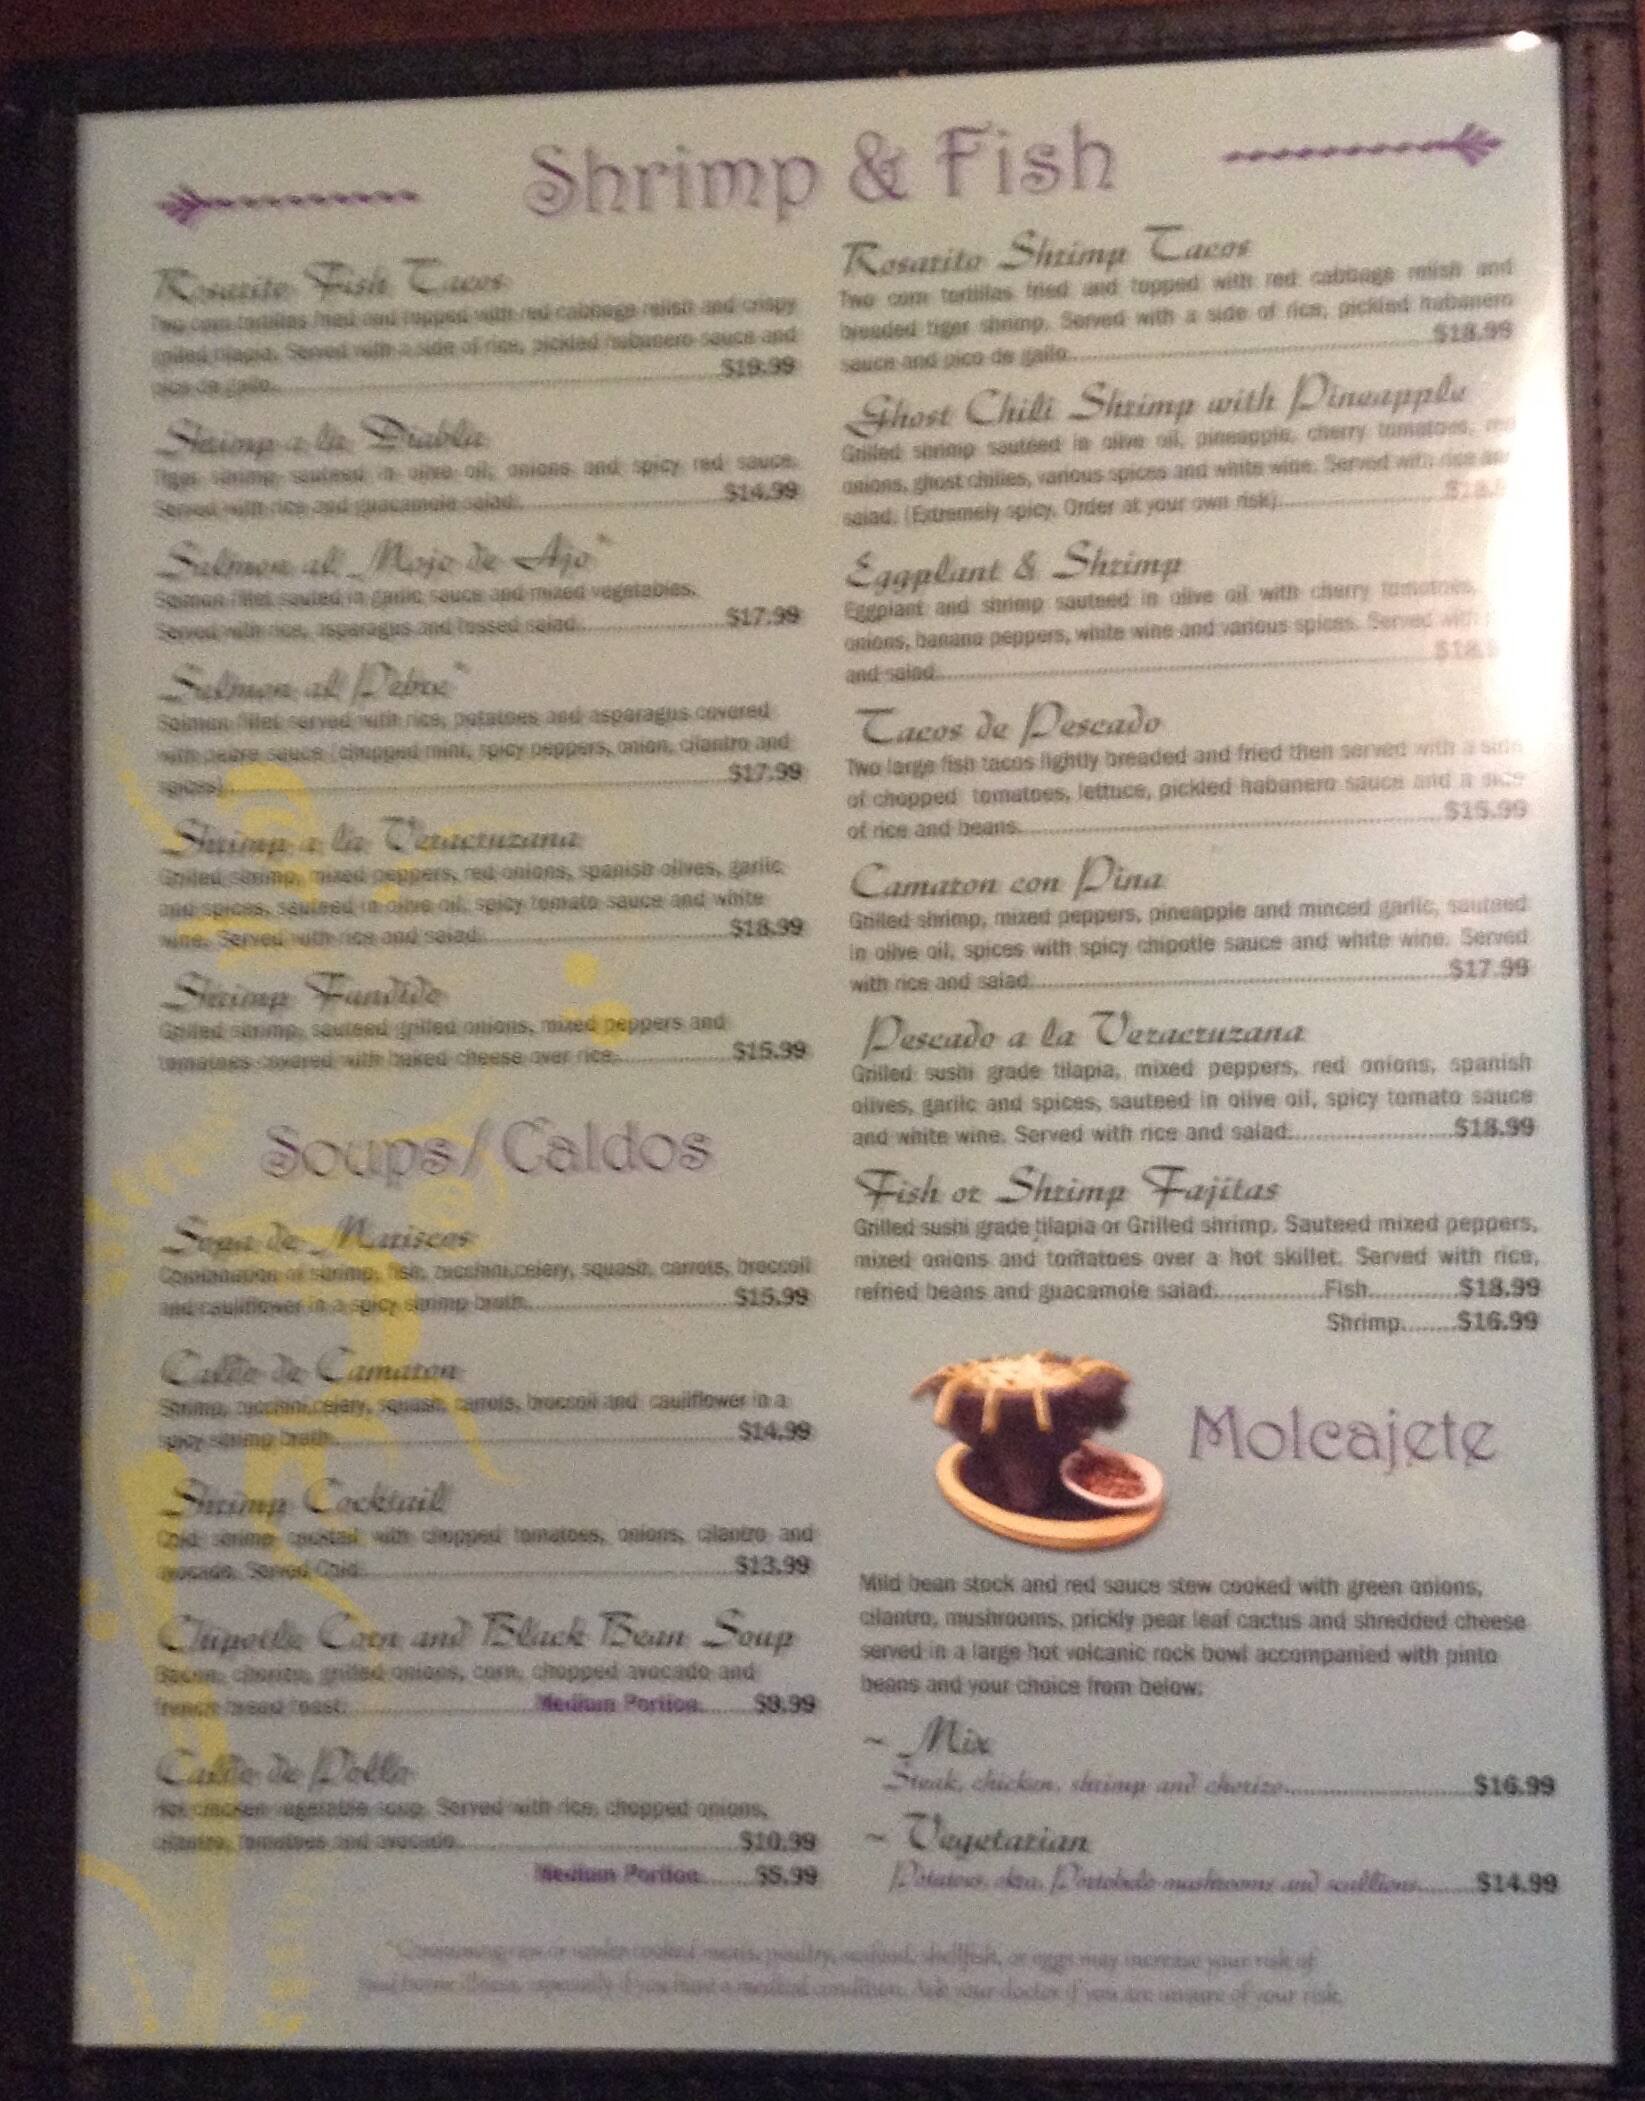 Shrimp & Fish
Rosarito Fish Tacos
Two corn tortillas fried and topped with red cabbage relish and crispy
grilled tilapia. Served with a side of rice, pickled habanero sauce and
pico de gallo. $19.99
Shrimp a la Diabla
Tiger shrimp sauteed in olive oil, onions and spicy red sauce.
Served with rice and guacamole salad. $14.99
Salmon al Mojo de Ajo*
Salmon fillet sauted in garlic sauce and mixed vegetables.
Served with rice, asparagus and tossed salad. $17.99
Salmon al Pebre*
Salmon fillet served with rice, potatoes and asparagus covered
with pebre sauce (chopped mint, spicy peppers, onion, cilantro and
spices) $17.99
Shrimp a la Veracruzana
Grilled shrimp, mixed peppers, red onions, spanish olives, garlic
and spices, sauteed in olive oil, spicy tomato sauce and white
wine. Served with rice and salad. $18.99
Shrimp Fundido
Grilled shrimp, sauteed grilled onions, mixed peppers and
tomatoes covered with baked cheese over rice. $15.99
Soups/Caldos
Sopa de Mariscos
Combination of shrimp, fish, zucchini,celery, squash, carrots, broccoli
and cauliflower in a spicy shrimp broth. $15.99
Caldo de Camaron
Shrimp, zucchini,celery, squash, carrots, broccoli and cauliflower in a
spicy shrimp broth. $14.99
Shrimp Cocktail
Cold shrimp cocktail with chopped tomatoes, onions, cilantro and
avocado. Served Cold. $13.99
Chipotle Corn and Black Bean Soup
Bacon, chorizo, grilled onions, corn, chopped avocado and
french bread toast. Medium Portion $9.99
Caldo de Pollo
Hot chicken vegetable soup. Served with rice, chopped onions,
cilantro, tomatoes and avocado. $10.99
Medium Portion $5.99
Rosarito Shrimp Tacos
Two corn tortillas fried and topped with red cabbage relish and
breaded tiger shrimp. Served with a side of rice, pickled habanero
sauce and pico de gallo. $18.99
Ghost Chili Shrimp with Pineapple
Grilled shrimp sauteed in olive oil, pineapple, cherry tomatoes, red
onions, ghost chilies, various spices and white wine. Served with rice and
salad. (Extremely spicy, Order at your own risk)
Eggplant & Shrimp
Eggplant and shrimp sauteed in olive oil with cherry tomatoes,
onions, banana peppers, white wine and various spices. Served with
and salad.
Tacos de Pescado
Two large fish tacos lightly breaded and fried then served with a side
of chopped tomatoes, lettuce, pickled habanero sauce and a side
of rice and beans. $15.99
Camaron con Pina
Grilled shrimp, mixed peppers, pineapple and minced garlic, sauteed
in olive oil, spices with spicy chipotle sauce and white wine. Served
with rice and salad. $17.99
Pescado a la Veracruzana
Grilled sushi grade tilapia, mixed peppers, red onions, spanish
olives, garlic and spices, sauteed in olive oil, spicy tomato sauce
and white wine. Served with rice and salad. $18.99
Fish or Shrimp Fajitas
Grilled sushi grade tilapia or Grilled shrimp. Sauteed mixed peppers,
mixed onions and tomatoes over a hot skillet. Served with rice,
refried beans and guacamole salad. Fish $18.99
Shrimp $16.99
Molcajete
Mild bean stock and red sauce stew cooked with green onions,
cilantro, mushrooms, prickly pear leaf cactus and shredded cheese
served in a large hot volcanic rock bowl accompanied with pinto
beans and your choice from below:
~ Mix
Steak, chicken, shrimp and chorizo $16.99
~ Vegetarian
Potatoes, okra, Portobelo mushrooms and scallions $14.99
*Consuming raw or under cooked meats, poultry, seafood, shellfish, or eggs may increase your risk of
food borne illness, especially if you have a medical condition. Ask your doctor if you are unsure of your risk.